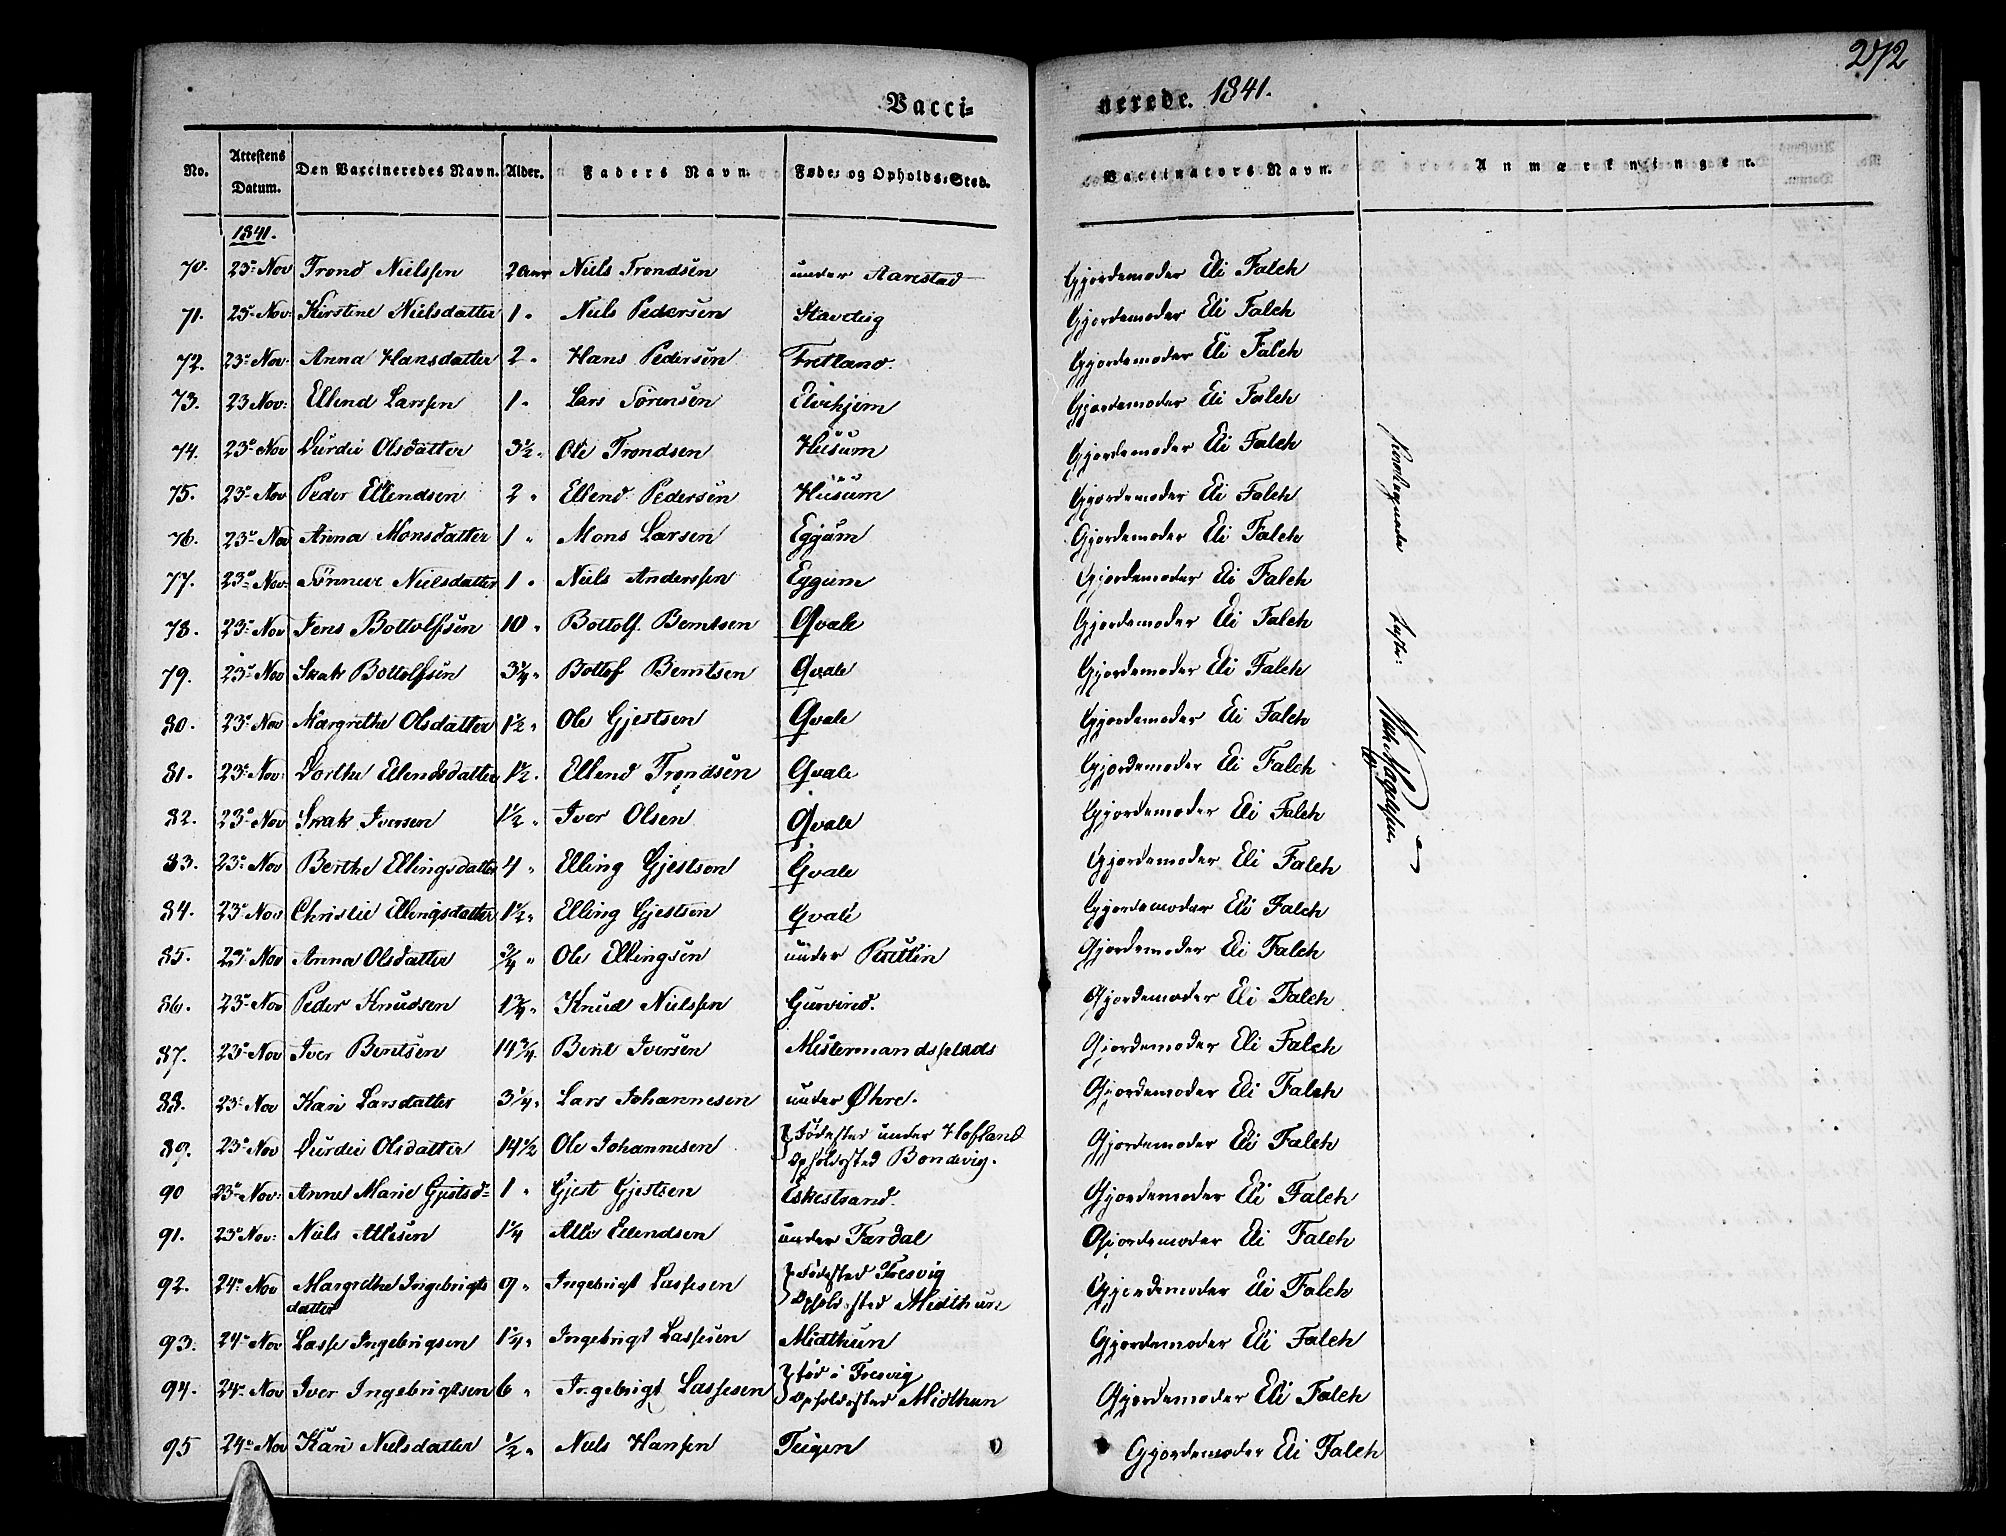 272
Vacci=
nerede. 1841.
No. Attestens Datum. Den Vaccineredes Navn. Alder. Faders Navn. Føde- og Opholds-Sted. Vaccinators Navn. Anmærkninger.
1841.
70. 23de Nov Trond Nielssen 2 Aar Niels Trondsen under Aarestad Gjordemoder Eli Falch
71. 23 Nov: Kirstine Nielsdatter 1 " Niels Pedersen Stavdeig Gjordemoder Eli Falch
72. 23de Nov: Anna Hansdatter 2 " Hans Pedersen Fretland. Gjordemoder Eli Falch
73. 23 Nov: Ellend Larssen 1 " Lars Sørensen Elvihjem Gjordemoder Eli Falch
74. 23de Nov Durdie Olsdatter 3½ " Ole Trondsen Husum Gjordemoder Eli Falch
75. 23de Nov Peder Ellendsen 2 " Ellend Pedersen Husum Gjordemoder Eli Falch
76. 23de Nov Anna Monsdatter 1 " Mons Larsen Eggum Gjordemoder Eli Falch
77. 23de Nov: Sønneve Nielsdatter 1 " Niels Anderssen Eggum Gjordemoder Eli Falch
78. 23de Nov Jens Bottolfsen 10 " Bottolf Berntsen Qvale Gjordemoder Eli Falch
79. 23de Nov Skak Bottolfsen 3¼ " Bottolf Berntsen Qvale Gjordemoder Eli Falch
80. 23de Nov Margrethe Olsdatter 1½ " Ole Gjestsen Qvale Gjordemoder Eli Falch
81. 23de Nov: Dorthe Ellendsdatter 1½ " Ellend Trondsen Qvale Gjordemoder Eli Falch
82. 23de Nov Skak Iversen 1½ " Iver Olsen Qvale Gjordemoder Eli Falch
83. 23de Nov Berthe Ellingsdatter 4 " Elling Gjestsen Qvale Gjordemoder Eli Falch
84. 23de Nov Christie Ellingsdatter 1½ " Elling Gjestsen Qvale Gjordemoder Eli Falch
85. 23de Nov Anna Olsdatter ¾ " Ole Ellingsen under Gjordemoder Eli Falch
86. 23de Nov Peder Knudsen 1¾ " Knud Nielssen Gurvind. Gjordemoder Eli Falch
87. 23de Nov Iver Bentsen 14¾ Bent Iversen Mestermandsplads Gjordemoder Eli Falch
88. 23de Nov Kari Larsdatter 3¼ " Lars Johannesen under Øhre. Gjordemoder Eli Falch
89. 23de Nov Durdie Olsdatter 14½ Ole Johannesen Fødested under Hofland
Opholdssted Bondevig. Gjordemoder Eli Falch
90 23de Nov: Anne Marie Gjestsd= 1 " Gjest Gjestsen Eskestrand. Gjordemoder Eli Falch
91. 23de Nov: Niels Atlesen 1¼ Atle Ellendsen under Fardal Gjordemoder Eli Falch
92. 24de Nov Margrethe Ingebrigts
datter 9 " Ingebrigt Lassesen Fødested Fresvig
Opholdssted Midthun Gjordemoder Eli Falch
93. 24de Nov Lasse Ingebrigsen 1¼ " Ingebrigt Lassesen Midthun Gjordemoder Eli Falch
94. 24de Nov Iver Ingebrigtsen 6 " Ingebrigt Lassesen fød i Fresvig
Opholdssted Midthun Gjordemoder Eli Falch
95 24de Nov Kari Nielsdatter ½ " Niels Hansen Teigen Gjordemoder Eli Falch